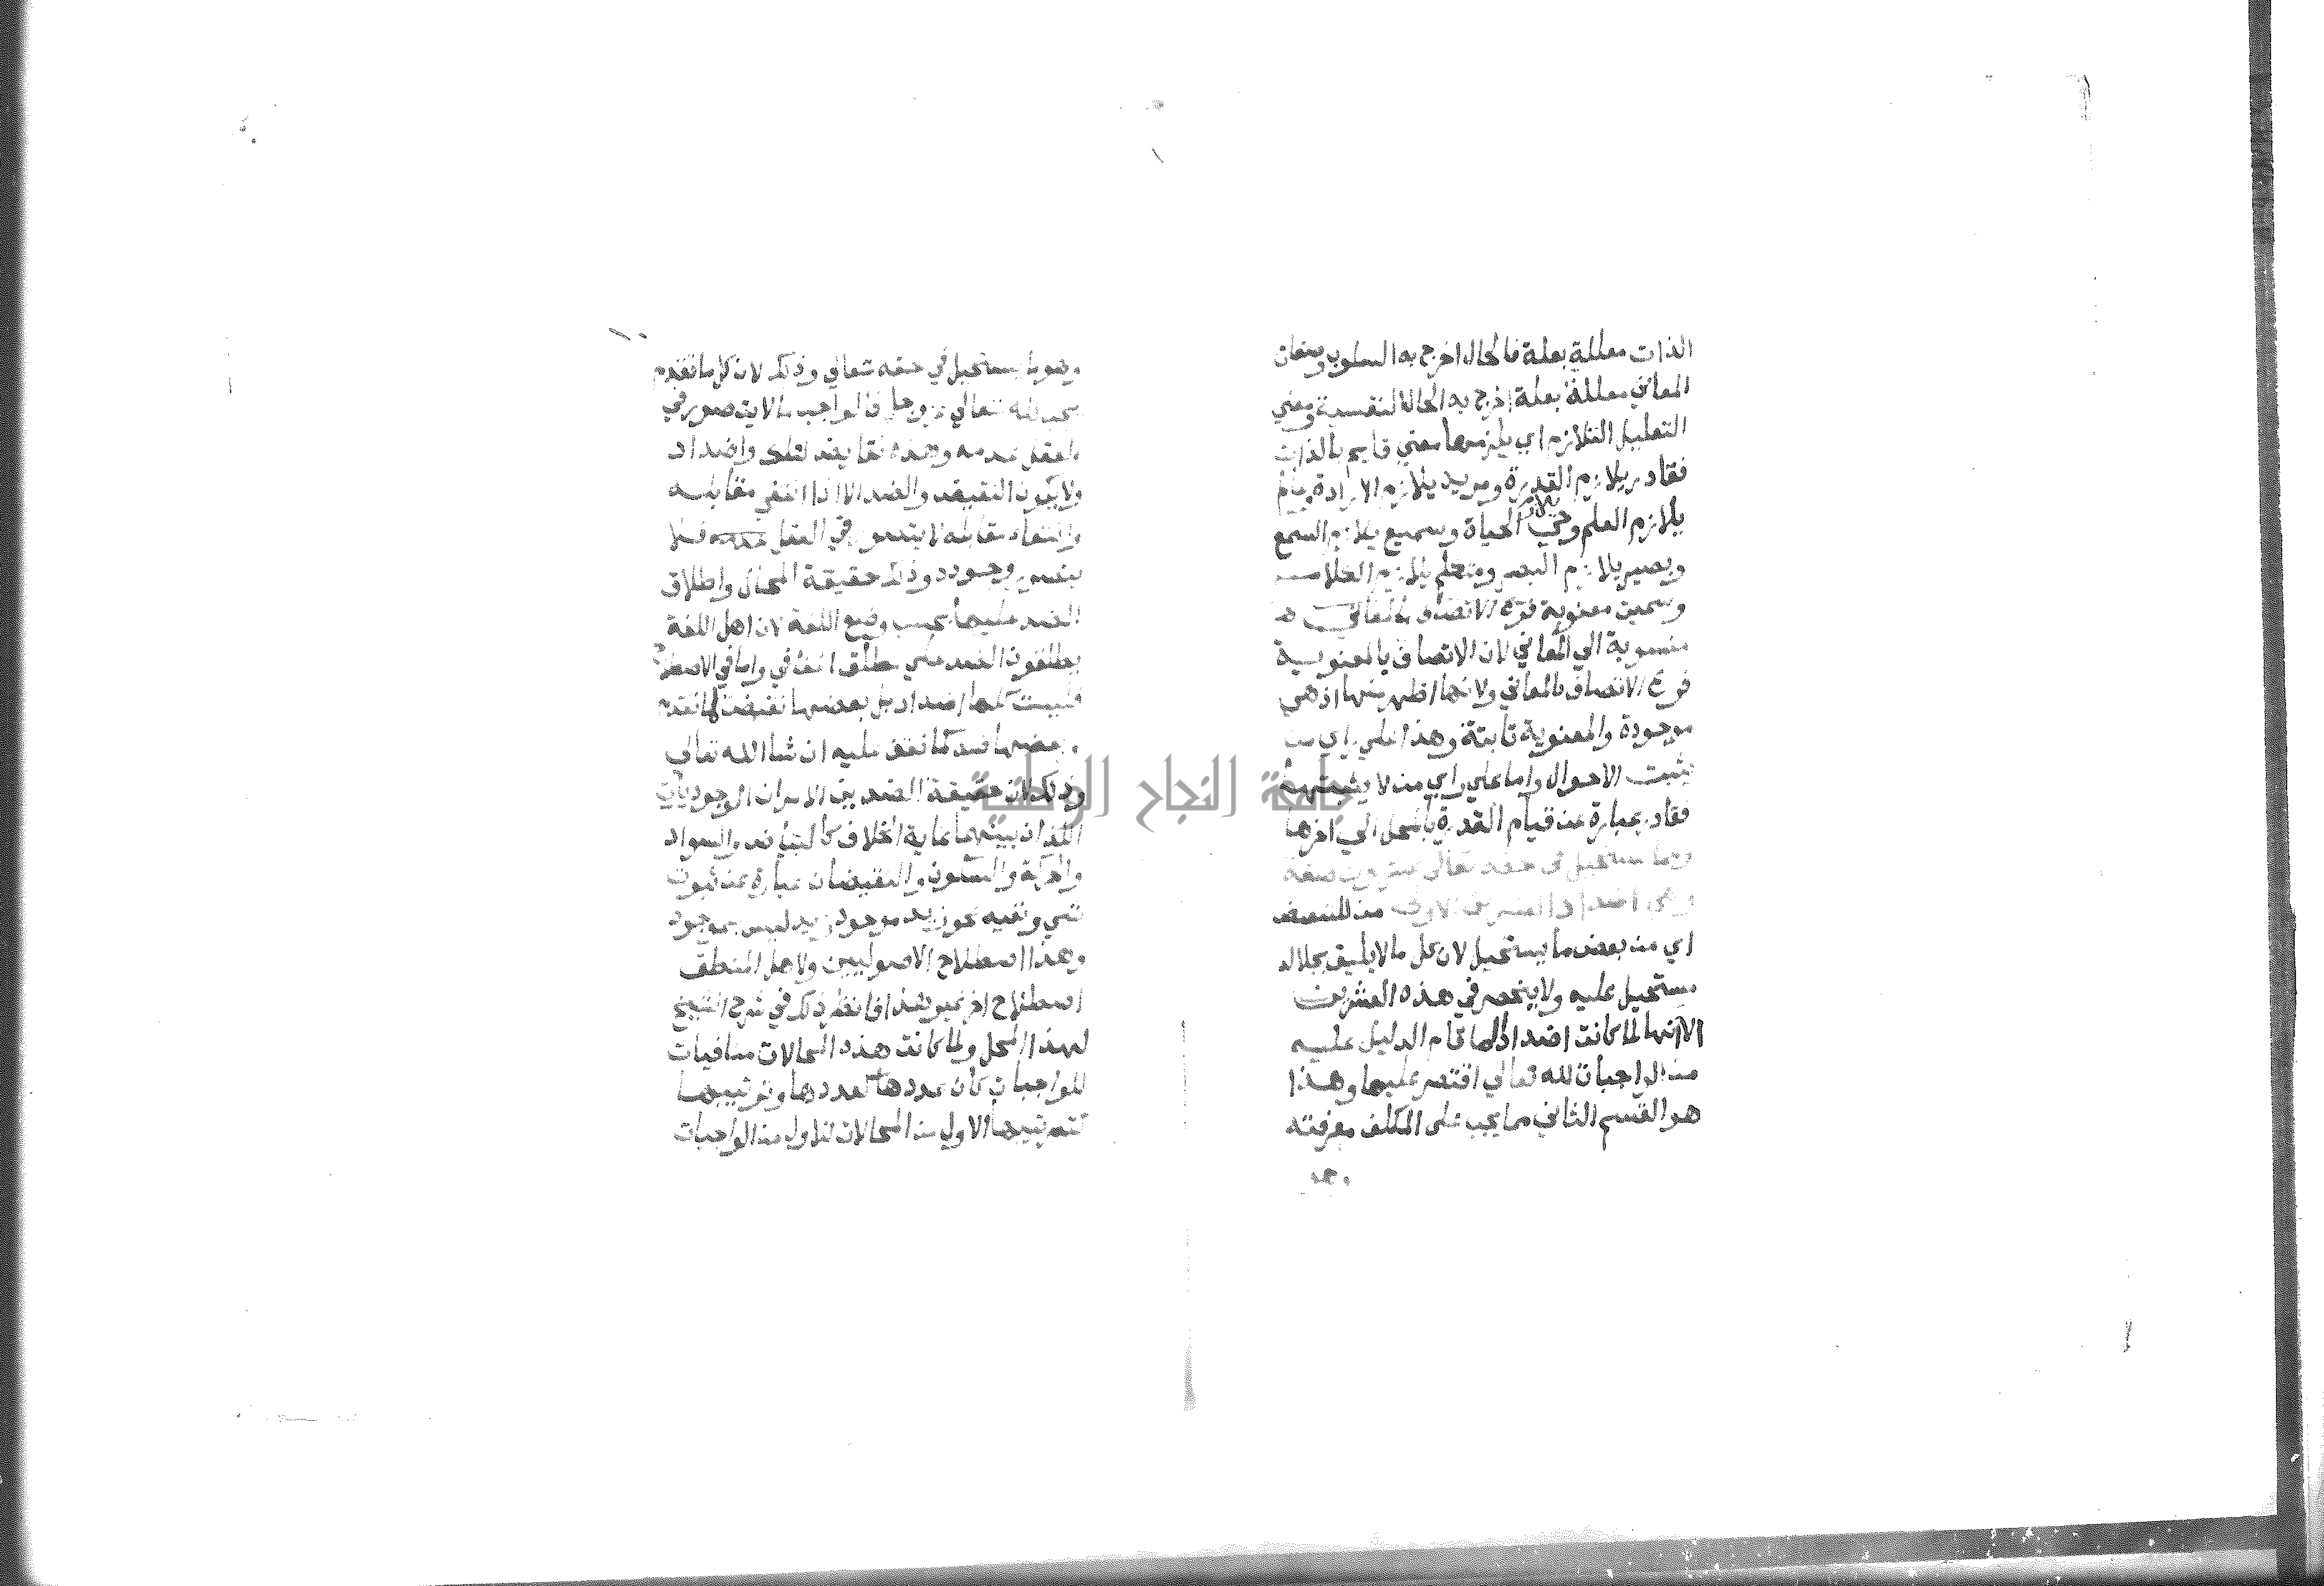 الذات معللة بعلة فالحال اخرج به السلوب وصفات
المعاني معللة بعلة اخرج به الحال النفسية ومعني
التعليل التلازم اي يلازمها معني قايم بالذات
فقادر يلازم القدرة ومريد يلازم الارادة وعالم
يلازم العلم وحي يلازم الحياة وسميع يلازم السمع
وبصير يلازم البصر ومتكلم يلازم الكلام
وسميت معنوية فرع الاتصاف بالمعاني
منسوبة الي المعاني لان الاتصاف بالمعنوية
فرع الاتصاف بالمعاني ولانها اظهر منها اذ هي
موجودة والمعنوية ثابتة وهذا علي راي من
يثبت الاحوال واما علي راي من لا يثبتها
فقادر عبارة عن قيام القدرة بالمحل الي اخرها
ومما يستحيل في حقه تعالي عشرون صفة
وهي اضداد العشرين الاولي من للتبعيض
اي من بعض ما يستحيل لان كل ما لا يليق بجلاله
مستحيل عليه ولا ينحصر في هذه العشرين
الا انها لما كانت اضداد لما قام الدليل عليه
من الواجبات لله تعالي اقتصر عليها وهذا
هو القسم الثاني مما يجب علي المكلف معرفته
وهو
وهو ما يستحيل في حقه تعالي وذلك لان كل ما تقدم
يجب لله تعالي عز وجل فالواجب ما لا يتصور في
العقل عدمه وهذه نقايض لتلك واضداد
ولا يكون النقيض والضد الا اذا انتفي مقابله
وانتفاء مقابله لا يتصور في العقل عدمه فلا
يتصور وجوده وذلك حقيقة المحال واطلاق
الضد عليها بحسب وضع اللغة لان اهل اللغة
يطلقون الضد علي مطلق المنافي واما في الاصطلاح
فليست كلها اضداد بل بعضها نقيض لما تقدم
وبعضها ضد كما نقف عليه ان شا الله تعالي
وذلك لان حقيقة الضد بين الامران الوجوديان
اللذان بينهما غاية الخلاف كالبياض والسواد
والحركة والسكون والنقيضان عبارة عن ثبوت
شي ونفيه نحو زيد موجود زيد ليس بموجود
وهذا اصطلاح الاصوليين ولاهل المنطق
اصطلاح اخر غير هذا فانظر ذلك في شرح الشيخ
لهذا المحل ولما كانت هذه المحالات منافيات
للواجبات كان عددها كعددها وترتيبها
كترتيبها الاول من المحالات للاول من الواجبات
جامعة النجاح الوطنية